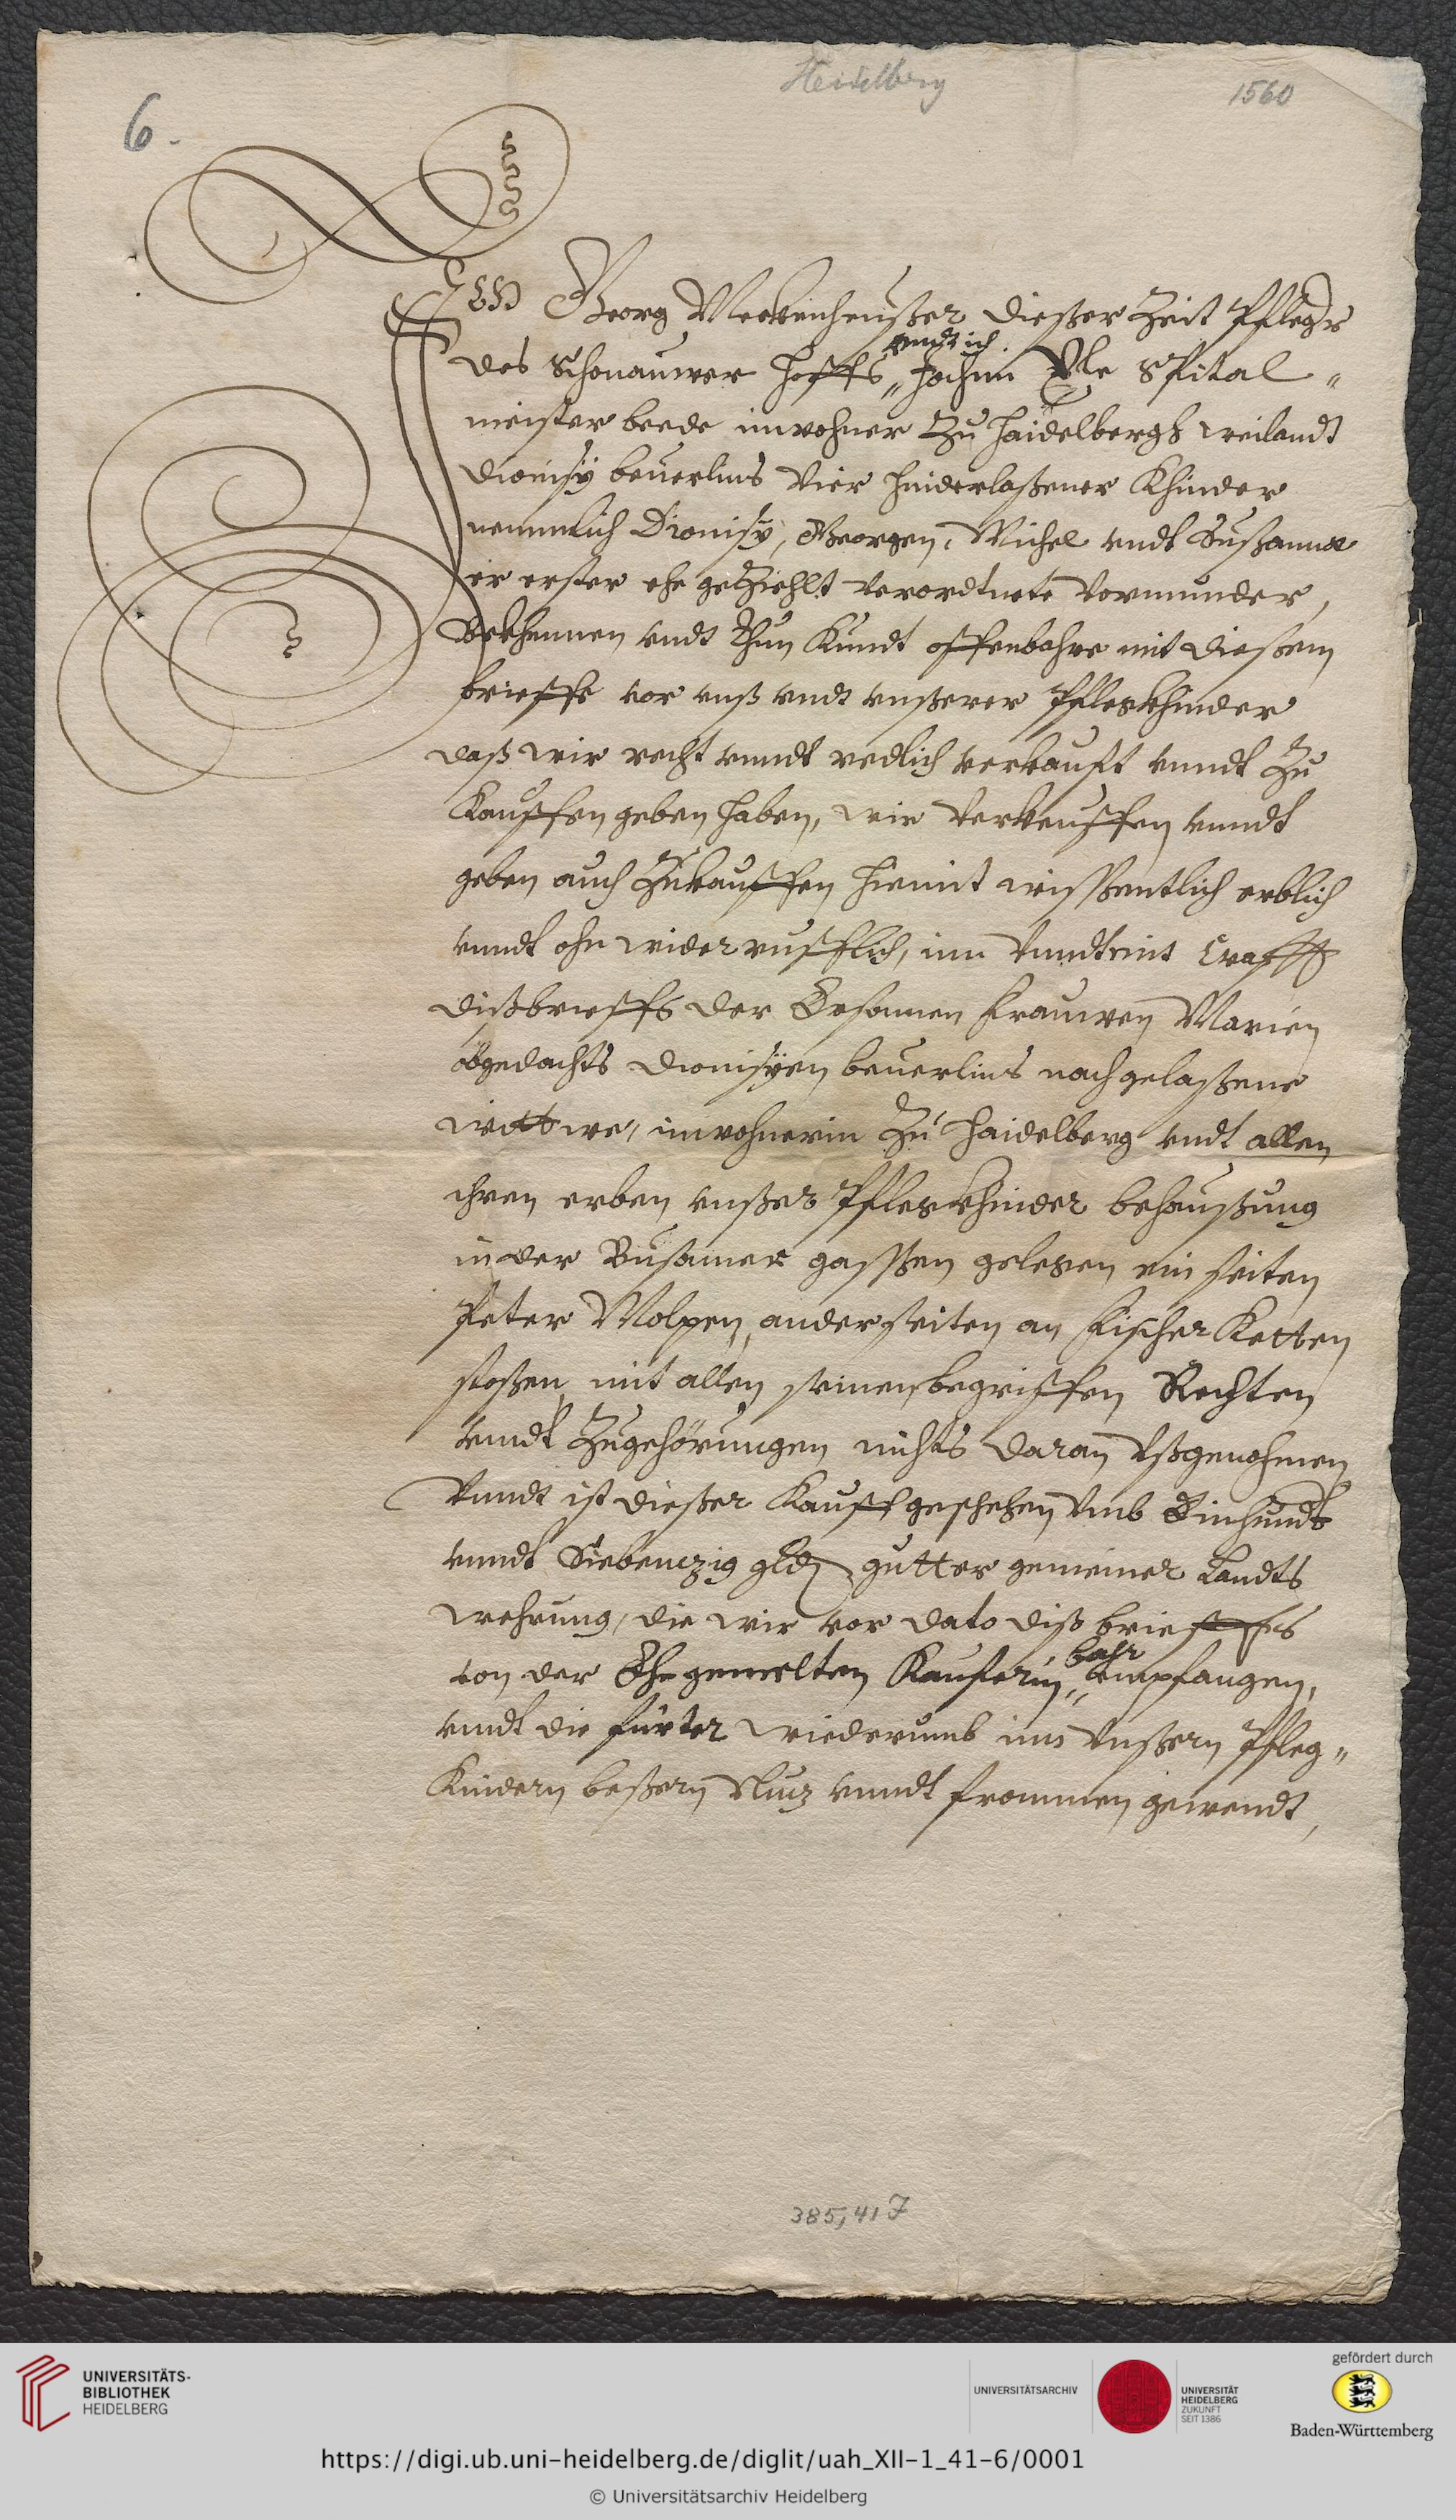 Heidelberg 1560
6.
Ich Georg Merkenheußer dießer Zeit Pfleger
vndt ich
des Schonauwer Hoffs, Jochim Vle Spital„
meister beede inwohner Zu Haidelbergk weilandt
Dionisÿ beuerlins Vier hinderlaßener Khinder
nemmlich Dionisÿ, Georgen, Michel vndt Sußanna
er erster ehe gethziehlt verordtnete Vormünder,
Bekhennen vndt Thun Kundt offenbahre mit dießem
brieffe vor vnß vndt vnßerer Pflegkhinder
daß wir recht vnndt redlich verkaufft vnndt Zu
Kauffen geben haben, wir Verkeuffen vnndt
geben auch Zukauffen hiemit wißßentlich erblich
vnndt ohn widerrufflich, inn Vnndt mit Crafft
dißbrieffs der Ersamen frauwen Marien
obgedachts Dionisÿen beuerlins nachgelaßene
wittwe, inwohnerin Zu Haidelberg vndt allen
ihren erben vnßer Pflegkhinder behaußung
in der Busamer gaßßen gelegen ein seiten
Peter Molpen, anderseiten an fischer Ketten
stoßen, mit allen seinen begriffen Rechten
vnndt Zugehörungen nichts daran Vßgenohmen
Vnndt ist dießer Kauff geschehen Vmb Einhundt
vnndt Siebenczig gld gutter gemeiner Landts
wehrung, die wir vor dato diß brieffes
bahr
von der Ehegemelten Kauferin, empfangen,
vnndt die fürter wiederumb inn Vnßern Pfleg„
Kindern beßern Nucz vnndt frommen gewendt,
385,41 J
UNIVERSITÄTS-
BIBLIOTHEK
HEIDELBERG
UNIVERSITÄTSARCHIV
UNIVERSITÄT
HEIDELBERG
ZUKUNFT
SEIT 1386
gefördert durch
Baden-Württemberg
https://digi.ub.uni-heidelberg.de/diglit/uah_XII-1_41-6/0001
© Universitätsarchiv Heidelberg